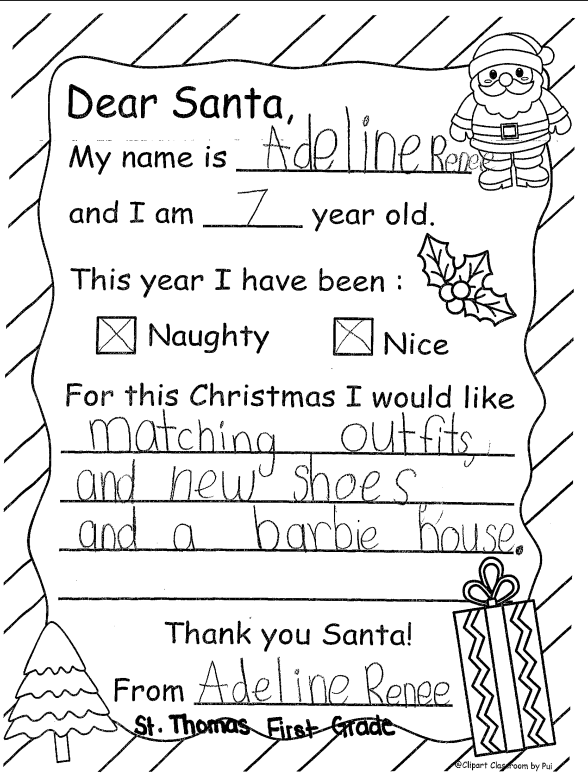 Dear Santa,
My name is Adeline Renee
and I am 7 year old.
This year I have been :
☒ Naughty ☒ Nice
For this Christmas I would like
matching outfits,
and new shoes,
and a barbie house.
Thank you Santa!
From Adeline Renee
St. Thomas First Grade
©Clipart Classroom by Pui